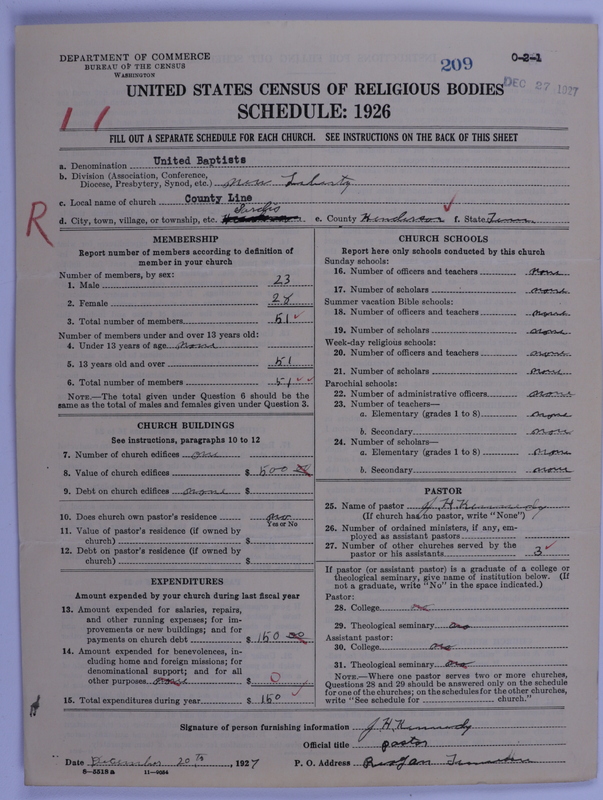 DEPARTMENT OF COMMERCE
BUREAU OF THE CENSUS
WASHINGTON
209
0-2-1
DEC 27 1927
UNITED STATES CENSUS OF RELIGIOUS BODIES
SCHEDULE: 1926
11
FILL OUT A SEPARATE SCHEDULE FOR EACH CHURCH. SEE INSTRUCTIONS ON THE BACK OF THIS SHEET
a. Denomination United Baptists
b. Division (Association, Conference,
Diocese, Presbytery, Synod, etc.) New Liberty
c. Local name of church County Line
R
d. City, town, village, or township, etc. Sardis e. County Henderson f. State Tenn
MEMBERSHIP
Report number of members according to definition of
member in your church
Number of members, by sex:
1. Male 23
2. Female 28
3. Total number of members 51
Number of members under and over 13 years old:
4. Under 13 years of age none
5. 13 years old and over 51
6. Total number of members 51
NOTE.—The total given under Question 6 should be the
same as the total of males and females given under Question 3.
CHURCH BUILDINGS
See instructions, paragraphs 10 to 12
7. Number of church edifices one
8. Value of church edifices $ 500
9. Debt on church edifices none $
10. Does church own pastor's residence no
Yes or No
11. Value of pastor's residence (if owned by
church) $
12. Debt on pastor's residence (if owned by
church) $
EXPENDITURES
Amount expended by your church during last fiscal year
13. Amount expended for salaries, repairs,
and other running expenses; for im-
provements or new buildings; and for
payments on church debt $ 150 00
14. Amount expended for benevolences, in-
cluding home and foreign missions; for
denominational support; and for all
other purposes none $ 0
15. Total expenditures during year $ 150
CHURCH SCHOOLS
Report here only schools conducted by this church
Sunday schools:
16. Number of officers and teachers none
17. Number of scholars none
Summer vacation Bible schools:
18. Number of officers and teachers none
19. Number of scholars none
Week-day religious schools:
20. Number of officers and teachers none
21. Number of scholars none
Parochial schools:
22. Number of administrative officers none
23. Number of teachers—
a. Elementary (grades 1 to 8) none
b. Secondary none
24. Number of scholars—
a. Elementary (grades 1 to 8) none
b. Secondary none
PASTOR
25. Name of pastor J H Kennedy
(If church has no pastor, write "None")
26. Number of ordained ministers, if any, em-
ployed as assistant pastors
27. Number of other churches served by the
pastor or his assistants 3
If pastor (or assistant pastor) is a graduate of a college or
theological seminary, give name of institution below. (If
not a graduate, write "No" in the space indicated.)
Pastor:
28. College no
29. Theological seminary no
Assistant pastor:
30. College no
31. Theological seminary no
NOTE.—Where one pastor serves two or more churches,
Questions 28 and 29 should be answered only on the schedule
for one of the churches; on the schedules for the other churches,
write "See schedule for church."
Signature of person furnishing information J H Kennedy
Official title pastor
Date December 20th, 1927 P. O. Address Reagan Tennessee
8—5518 a 11—9054